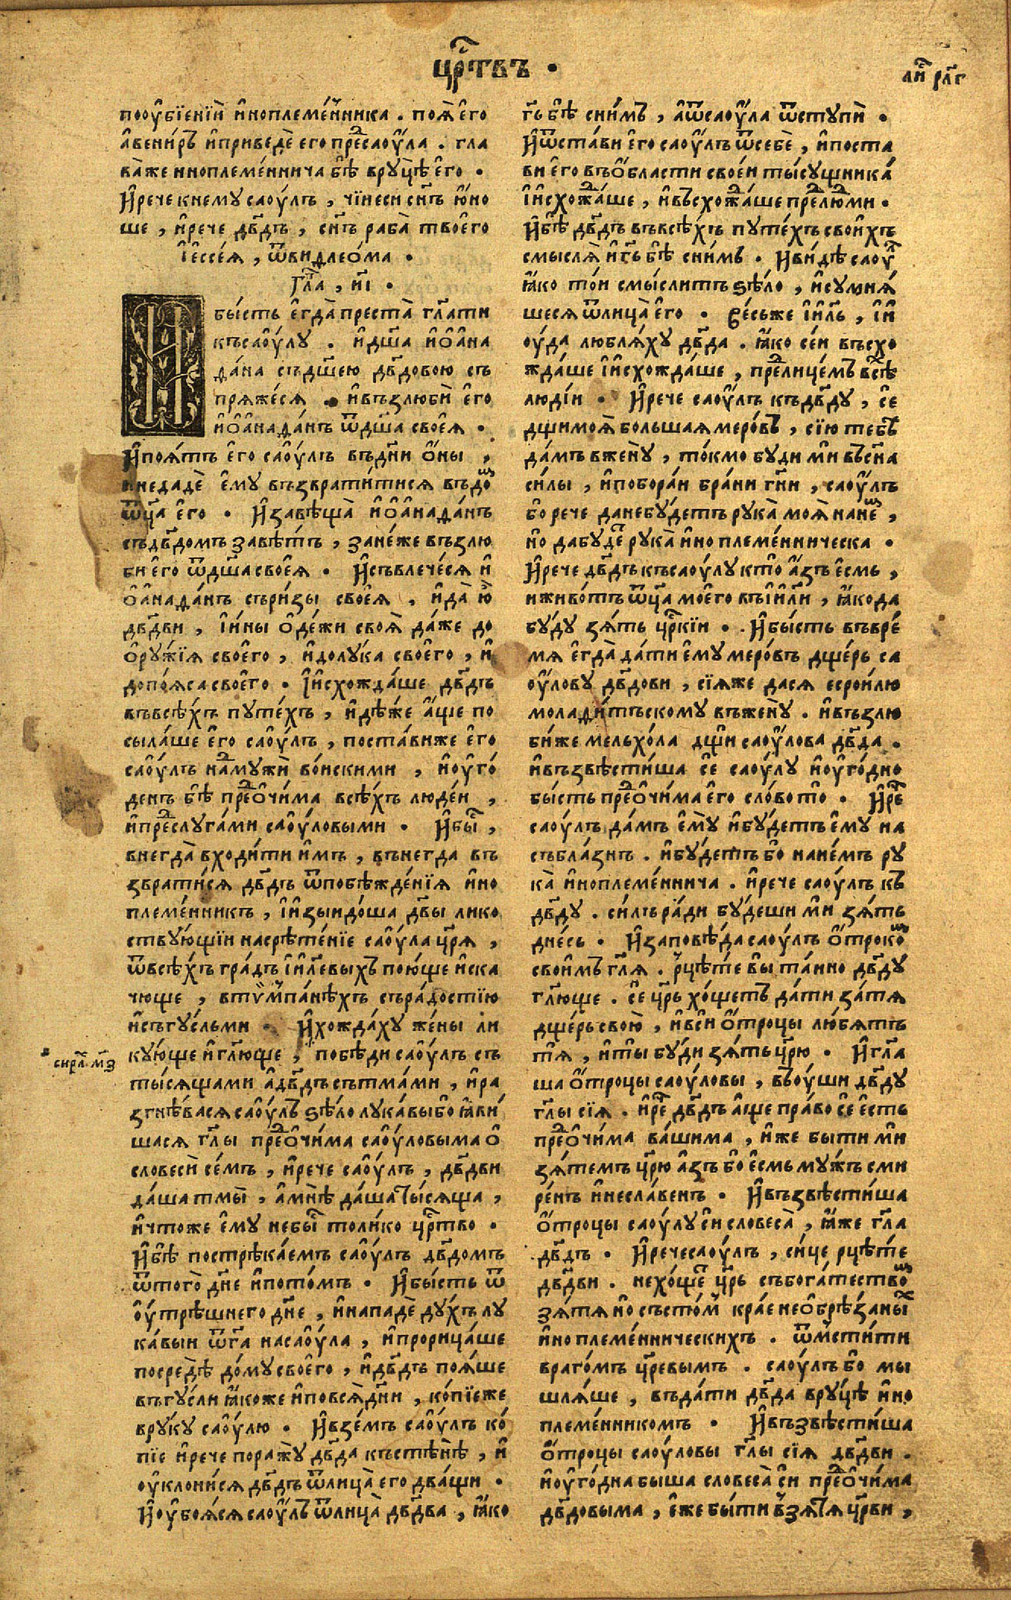 цр҃твъ ·
ли҃ рл҃г
поѹ҆бїенїѝ и҆ноплеме́нника . поѧ̀ его
а҆вени́ръ и҆приведѐ его пре́саѹ́ла . гла
ва́же иноплемѐннича бѣ̀ врꙋцѣ̀ е҆го̀ ·
И҆рече книемꙋ саѹ́лъ , чїи҆еси си҃ъ ю҆но
ше , и҆рече дв҃дъ , си҃ъ раба̀ твоего
і҆ессе́ѧ , ѿвидлео́ма ·
Гла҃ , и҃і ·
бы́сть е҆гда̀ преста̀ гл҃ати
къ саѹ́лꙋ . и҆дш҃а и҆о҆а҆на
да́на съдш҃ею дв҃довою съ
прѧже́сѧ . и҆възлюбѝ его̀
и҆о҆а҆нада́нъ ѿдш҃а своеѧ̀ .
И҆поѧ́тъ е҆го̀ саѹ́лъ въдн҃и ѻ҆́ны ,
и҆недадѐ е҆мꙋ̀ възврати́тисѧ въдо́
ѿц҃а е҆го̀ · И҆завѣща̀ и҆о҆а҆нада́нъ
съдв҃домъ завѣ́тъ , зане́же възлю
би е҆го̀ ѿдш҃а своеѧ̀ · И҆съвлече́сѧ и҆
о҆а҆нада́нъ съри́зы своеѧ̀ , и҆да̀ ю҆
дв҃дви , і҆и҆ны ѻ҆де́жи своѧ̀ да́же до
ѻ҆рꙋ́жїѧ своего̀ , и҆долꙋка своего̀ , и҆
допоѧса своего̀ · І҆исхожда́ше дв҃дъ
въвсѣ́хъ пꙋте́хъ , и҆дѣ́же а҆́ще по
сыла́ше е҆го̀ саѹ́лъ , поста́виже е҆го̀
саѹ́лъ на́мꙋжѝ во́искими , и҆ѹ҆го́
денъ бѣ̀ пре́ѻчима всѣ́хъ люде́и ,
и҆пре́слꙋга́ми саѹ́ловыми · И҆бы̀ ,
внегда̀ входи́ти и҆́мъ , внегда въ
зврати́сѧ дв҃дъ ѿпобѣжде́нїѧ и҆но
племе́нникъ , і҆изыидо́ша дв҃ы лико
ствꙋ́ющїи насрѣте́нїе саѹ́ла цр҃ѧ ,
ѿвсѣ́хъ гра́дъ і҆и҃левыхъ пою́ще и҆ска
чюще , втѷмпа́нѣхъ съра́достїю
и҆съгꙋ́сльми · И҆хожда́хꙋ же́ны ли
кꙋ́юще и҆гл҃юще , побѣди саѹ́лъ съ
ты́сѧщами а҆дв҃дъ стъма́ми , и҆ра
згнѣ́васѧ саѹ́лъ ѕѣло лꙋка́вы бо ꙗ҆ви́
шасѧ гл҃ы пре́ѻчима саѹ́ловыма ѻ҆
словесѝ се́мъ , и҆рече саѹ́лъ , дв҃дви
да́ша тмы̀ , а҆мнѣ̀ да́ша ты́сѧща ,
и҆что́же е҆мꙋ̀ небы̀ то́лико цр҃тво ·
И҆бѣ̀ пострѣка́емъ саѹ́лъ дв҃домъ
ѿтого̀ дн҃е и҆пото́мъ · И҆бы́сть ѿ
ѹ҆́трѣшнего дн҃е , и҆нападѐ дꙋ́хъ лꙋ
ка́выи ѿг҃а насаѹ́ла , и҆прорица́ше
посредѣ̀ до́мꙋ своего̀ , и҆дв҃дъ поѧ́ше
въгꙋ́сли ꙗ҆коже и҆повсѧ̀дн҃и , ко́пїеже
врꙋкꙋ саѹ́лю · И҆взе́мъ саѹ́лъ ко́
пїе и҆рече поражꙋ̀ дв҃да къстѣ́нѣ , и҆
ѹ҆клони́сѧ дв҃дъ ѿлица̀ его два́щи .
И҆ѹ҆боѧ́сѧ саѹ́лъ ѿлица̀ дв҃два , ꙗ҆́ко
г҃ь бѣ̀ сни́мъ , а҆ѿсаѹ́ла ѿстꙋпѝ .
И҆ѿста́ви е҆го саѹ́лъ ѿсебѐ , и҆поста
ви е҆го въѻ҆бласти свое́и ты́сꙋщника̀
і҆исхожа́ше , и҆въсхожа́ше пре́людми ·
И҆бѣ̀ дв҃дъ въвсѣ́хъ пꙋте́хъ свои́хъ
смыслѧ̀ и҆г҃ь бѣ̀ сни́мъ . И҆ви́дѣ саѹ́
ꙗ҆́ко то́и смы́слитъ ѕѣ́ло , и҆сꙋмнѧ́
шесѧ ѿлица̀ е҆го̀ · Ве́сьже і҆и҃ль , і҆и҆
ѹ҆да лю́блѧхꙋ дв҃да . ꙗ҆́ко се́и въсхо
жда́ше і҆исхожда́ше , прели́це́мъ всѣ̀
лю́дїи · И҆рече саѹ́лъ къдв҃дꙋ , се
дщи моѧ̀ бо́льшаѧ меро́въ , сїю тебѣ̀
да́мъ вженꙋ̀ , то́кмо бꙋ́ди ми всн҃а
си́лы , и҆побора́и бра́ни гн҃и , саѹ́лъ
бо рече да небꙋ́детъ рꙋка̀ моѧ̀ нане́ ,
но́ дабꙋ́де рꙋка̀ и҆ноплеме́нническа ·
И҆рече дв҃дъ къ саѹ́лꙋ кто̀ а҆́зъ е҆́смь ,
и҆живо́тъ ѿц҃а моего̀ въі҆и҃ли , ꙗ҆кода
бꙋ́дꙋ зѧ́ть цр҃кїи · И҆бы́сть въвре́
мѧ е҆гда̀ да́ти е҆мꙋ меро́въ дще́рь са
ѹ́ловꙋ дв҃дови , сїѧже дасѧ есрои́лю
молади́тъскомꙋ въженꙋ̀ . и҆възлю
би́же мельхо́ла дщи саѹ́лова дв҃да .
и҆възвѣсти́ша се саѹ́лꙋ и҆ѹ҆го́дно
бы́сть пре́ѻчима е҆го̀ сло́во то̀ · И҆ре́
саѹ́лъ да́мъ е҆мꙋ̀ и҆бꙋ́детъ е҆мꙋ на
събла́знъ . и҆бꙋ́детъ бо нане́мъ рꙋ
ка̀ и҆ноплеме́ннича . и҆рече саѹ́лъ къ
дв҃дꙋ . си́лъ ра́ди бꙋ́деши ми́ зѧ́ть
дне́сь · И҆заповѣ́да саѹ́лъ ѻ҆́троко́
свои́мъ гл҃ѧ . рцѣ́те вы̀ та́ино дв҃дꙋ
гл҃юще . сѐ цр҃ь хо́щетъ да́ти за́тѧ
дще́рь свою̀ , и҆вси ѻ҆́троцы лю́бѧтъ
тѧ̀ , и҆ты̀ бꙋ́ди зѧ́ть цр҃ю · И҆гл҃а
ша ѻ҆́троцы саѹ́ловы , въѹши дв҃дꙋ
гл҃ы сїѧ . и҆ре́ дв҃дъ а҆́ще пра́во се е҆́сть
пре́ѻчима ва́шима , и҆́же быти ми
зѧ́темъ цр҃ю а҆́зъ бо е҆́смь мꙋ́жъ сми
ре́нъ и҆несла́венъ · И҆възвѣсти́ша
ѻ҆́троцы саѹ́лꙋ си словеса̀ , ꙗ҆́же гл҃а
дв҃дъ · И҆рече саѹ́лъ , си́це рцѣ́те
дв҃дви . нехо́ще цр҃ь събога́тество́
зѧ́тѧ но̀ състо́м кра́е неѻбрѣ́заны́
и҆ноплеме́нническихъ . ѿмсти́ти
враго́мъ цр҃евымъ . саѹ́лъ бо мы
шлѧ́ше , въда́ти дв҃да врꙋцѣ̀ и҆но
племе́нникомъ · И҆възвѣсти́ша
ѻ҆́троцы саѹ́ловы гл҃ы сїѧ дв҃дви .
и҆ѹ҆го́дна быша словеса̀ си пре́ѻчима
дв҃довыма , е҆́же бы́ти взѧ́тѧ цр҃ви ,
си рл҃. м҃з